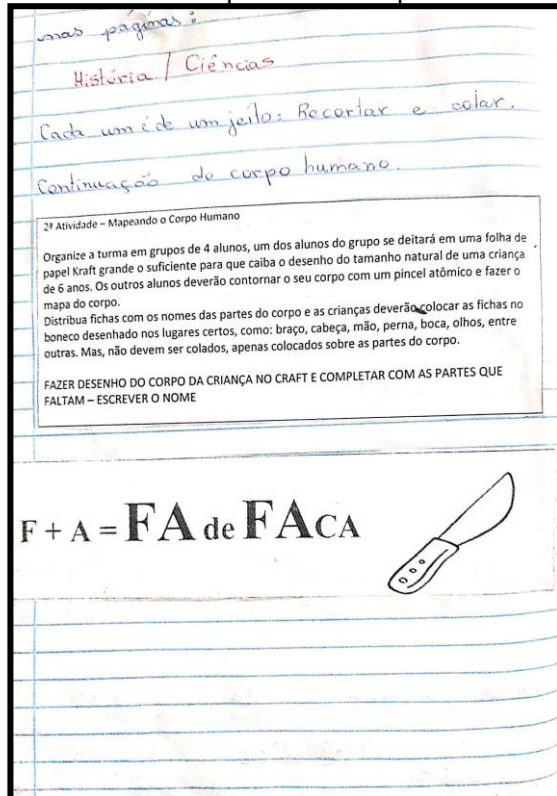 nas páginas:
História / Ciências
Cada um é de um jeito: Recortar e colar.
Continuação do corpo humano.
2ª Atividade – Mapeando o Corpo Humano
Organize a turma em grupos de 4 alunos, um dos alunos do grupo se deitará em uma folha de
papel Kraft grande o suficiente para que caiba o desenho do tamanho natural de uma criança
de 6 anos. Os outros alunos deverão contornar o seu corpo com um pincel atômico e fazer o
mapa do corpo.
Distribua fichas com os nomes das partes do corpo e as crianças deverão colocar as fichas no
boneco desenhado nos lugares certos, como: braço, cabeça, mão, perna, boca, olhos, entre
outras. Mas, não devem ser colados, apenas colocados sobre as partes do corpo.
FAZER DESENHO DO CORPO DA CRIANÇA NO CRAFT E COMPLETAR COM AS PARTES QUE
FALTAM – ESCREVER O NOME
F + A = FA de FACA